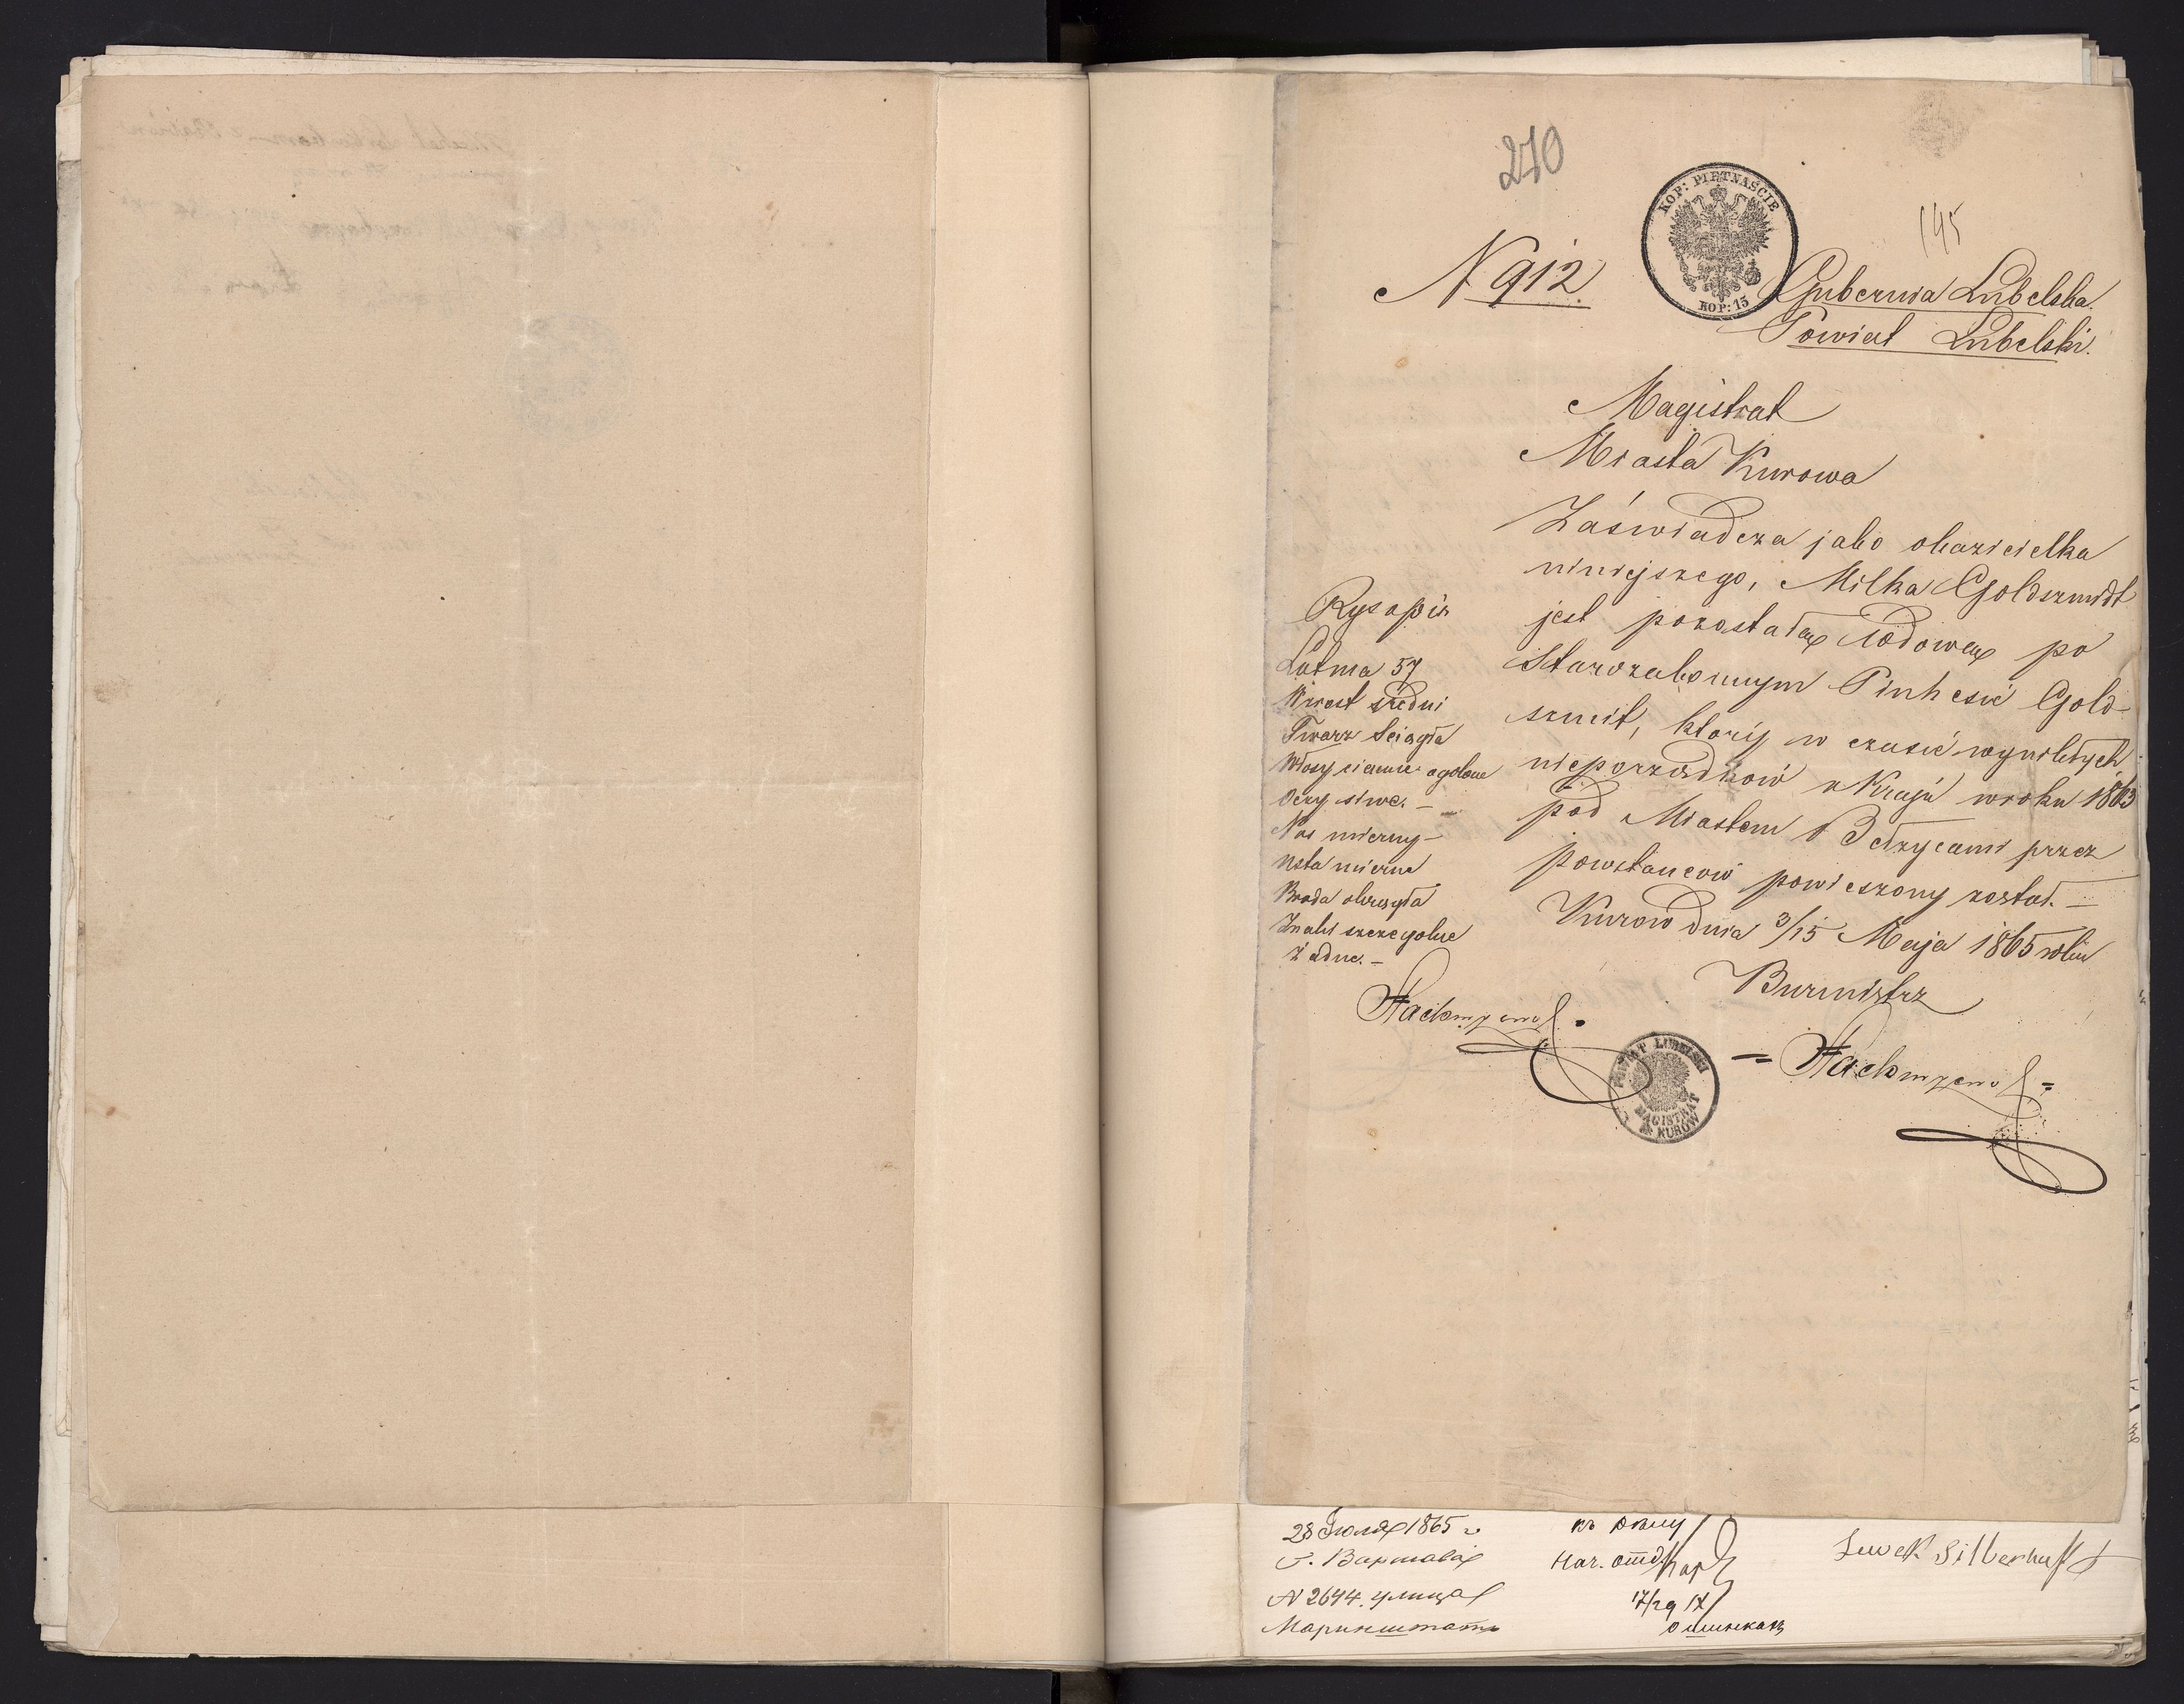 210
145
KOP: PIĘTNAŚCIE
KOP: 15
N 912
Gubernia Lubelska.
Powiat Lubelski.
Magistrat
Miasta Kurowa
Zaświadcza jako okazicielka
niniejszego, Milka Goldszmidt
jest pozostałą wdową po
Starozakonnym Pinhesie Gold-
szmit, który w czasie wynikłych
nieporządków w Kraju w roku 1863
pod Miastem Bełzycami przez
powstańców powieszony został. —
Kurów dnia 3/15 Maja 1865 roku
Burmistrz
Rysopis
Lat ma 57
Wzrost średni
Twarz ściągła
Włosy ciemne ogolone
Oczy siwe. —
Nos mierny —
Usta mierne
Broda okrągła
Znaki szczególne
żadne. —
POWIAT LUBELSKI
MAGISTRAT
M. KUROW
28 Июля 1865 г.
г. Варшава
N 2644. улица
Мариенштатъ
къ дѣлу
Нач. отд.
17/29 IX
Lewek Silberhaft